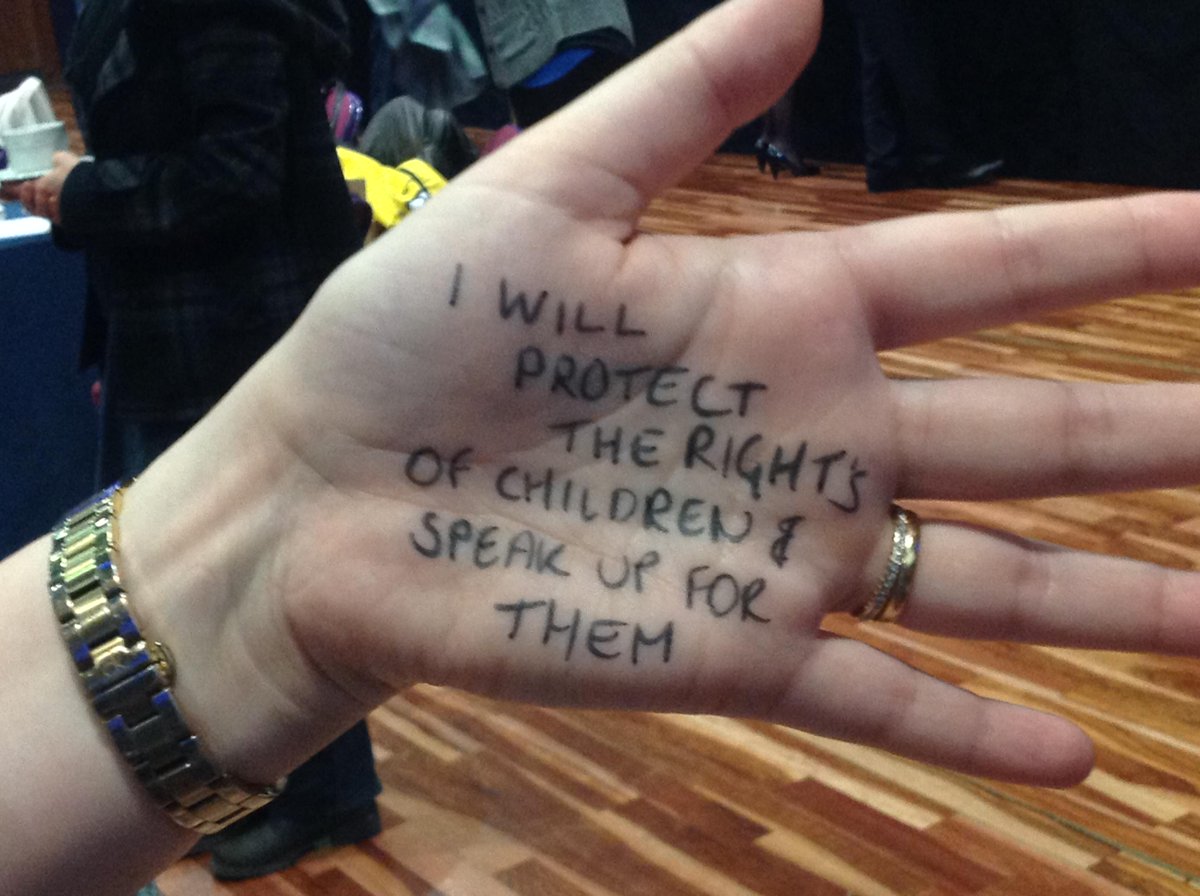 I WILL
PROTECT
THE RIGHT'S
OF CHILDREN &
SPEAK UP FOR
THEM